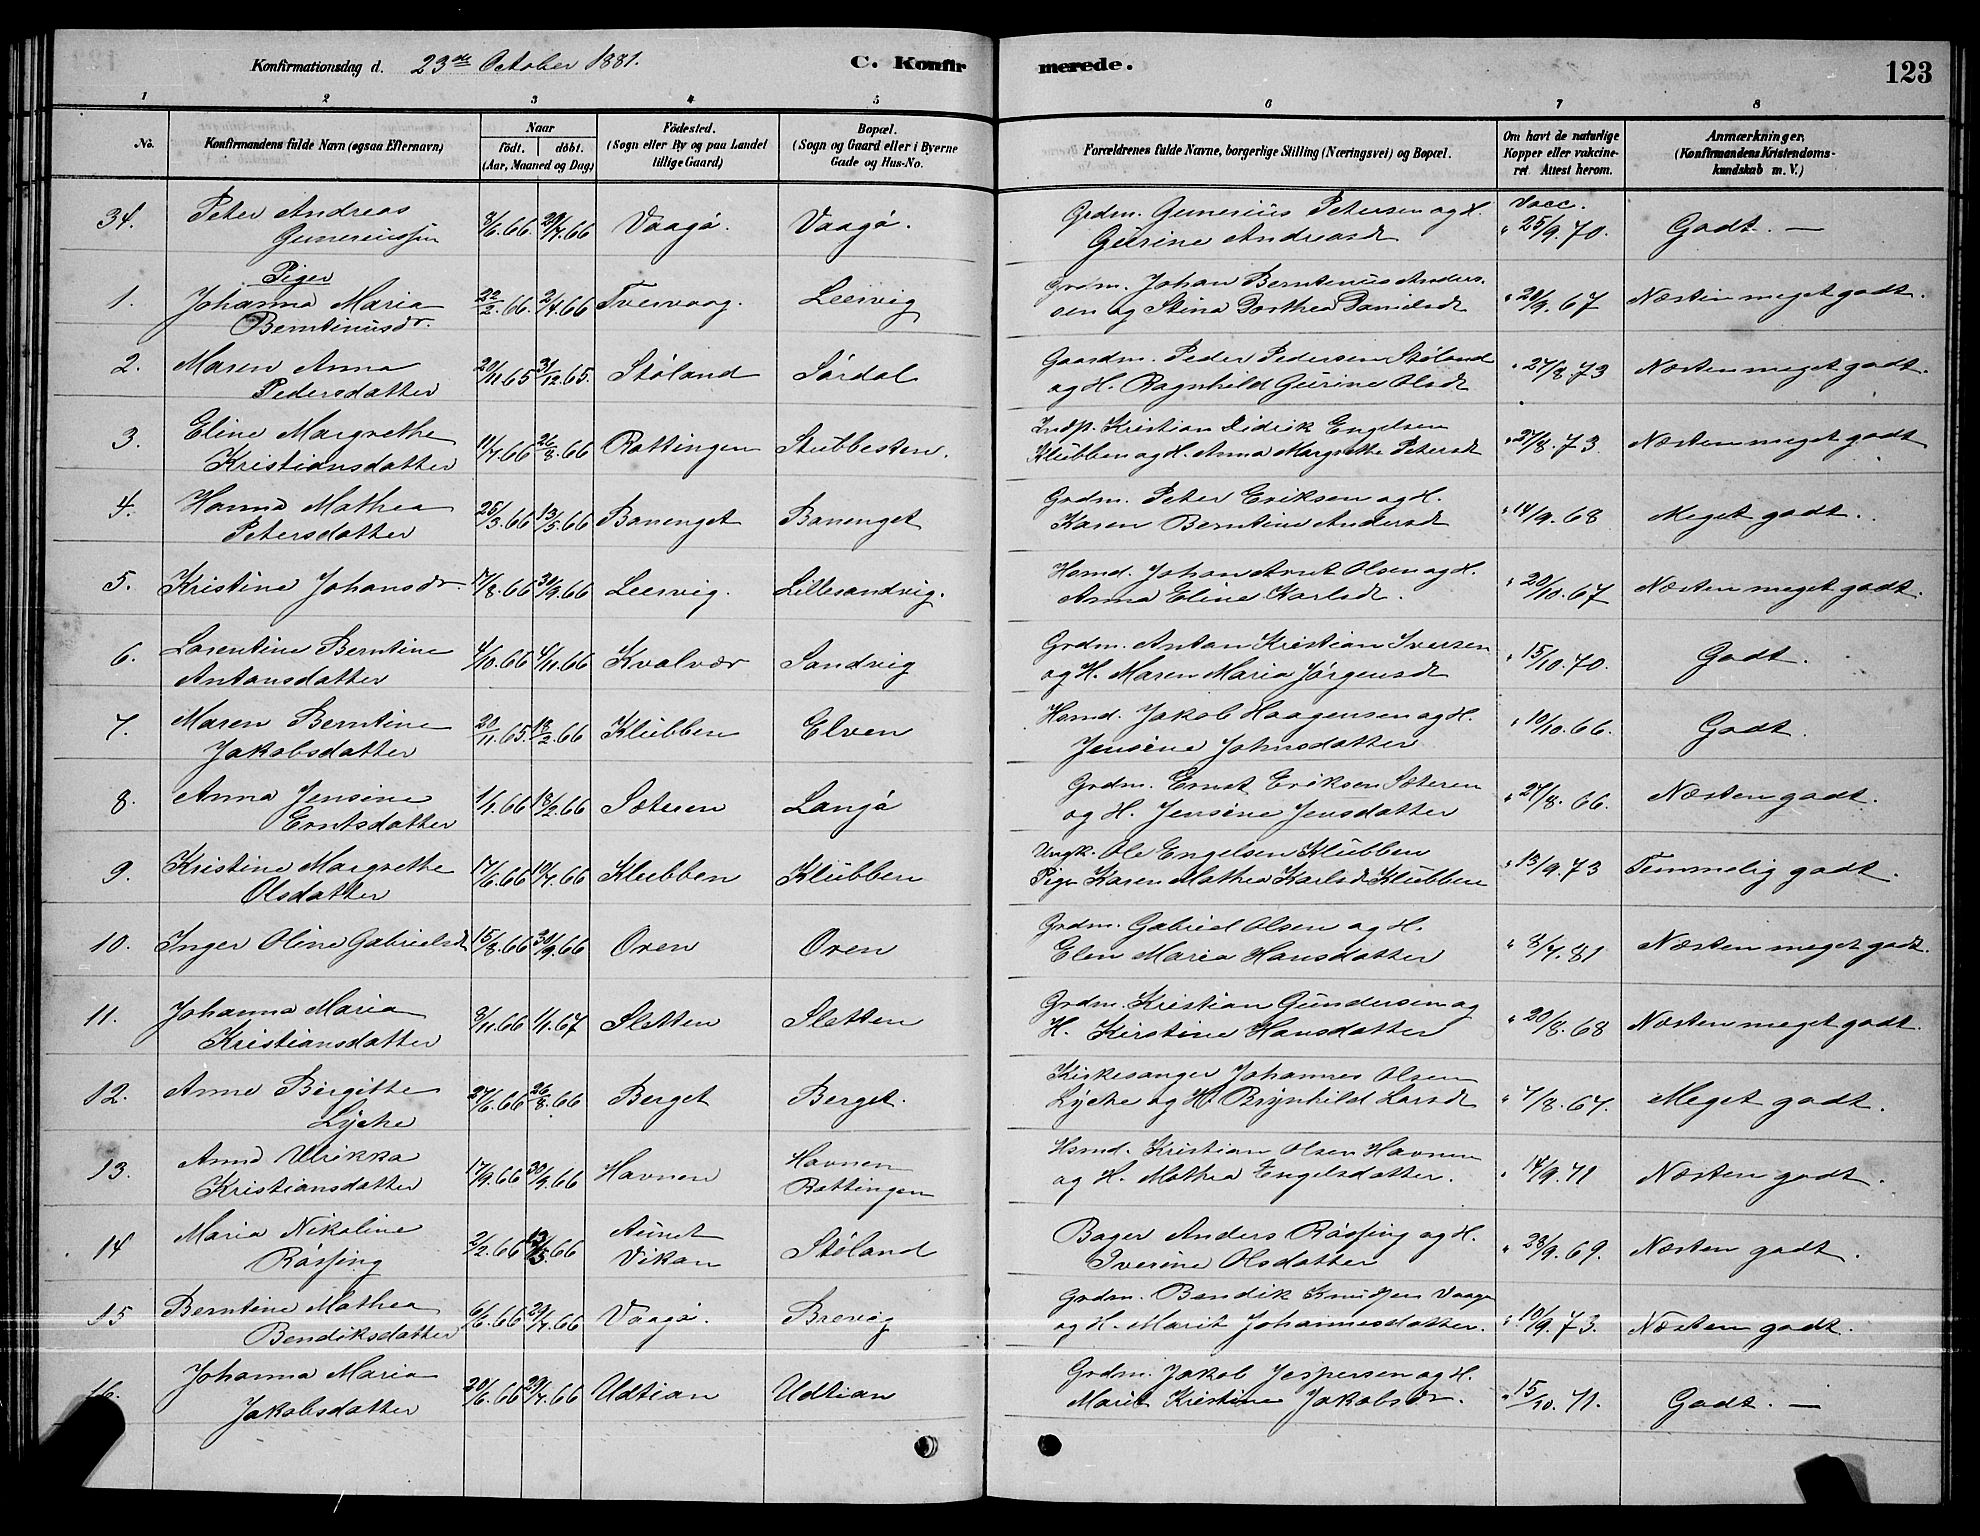 Konfirmationsdag d. 23de October 1881. C. Konfirmerede. 123
1 2 3 4 5 6 7 8
No. Konfirmandens fulde Navn (ogsaa Efternavn) Naar født. døbt. (Aar, Maaned og Dag) Fødested. (Sogn eller By og paa Landet tillige Gaard) Bopæl. (Sogn og Gaard eller i Byerne Gade og Hus-No. Forældrenes fulde Navne, borgerlige Stilling (Næringsvei) og Bopæl. Om havt de naturlige Kopper eller vakcineret. Attest herom. Anmærkninger. (Konfirmandens Kristendomskundskab m. V.)
34. Peter Andreas Gunneriussen 3/6.66. 29/7.66 Vaagø. Vaagø. Grdm. Gunerius Petersen og H. Gurine Andreasd Vacc. " 25/9.70. Godt. —
Piger
1. Johanna Maria Berntinusdr. 22/2.66. 2/4.66 Tvervaag. Leervig Grdm. Johan Berntinus Andersen og Stina Dorthea Danielsd " 20/9.67 Næsten meget godt.
2. Maren Anna Pedersdatter 20/11.65 31/12.65. Støland Sørdal Gaardm. Peder Pedersen Støland og H. Ragnhild Gurine Olsd " 27/8.73 Næsten meget godt.
3. Eline Margrethe Kristiansdatter 11/7.66 26/8.66 Rottingen Stubbesten. Indst. Kristian Didrik Engelsen Klubben og H. Anna Margrethe Petersd " 27/8.73. Næsten meget godt
4. Hanna Mathea Petersdatter 25/3.66 13/5.66 Banenget Banenget Grdm. Peter Eriksen og H. Karen Berntine Andersd " 14/9.68 Meget godt.
5. Kristine Johansdr. 17/8.66 30/9.66 Leervig. Lillesandvig. Hsmd. Johan Arnt Olsen og H. Anna Eline Karlsd. " 20/10.67 Næsten meget godt.
6. Larentine Berntine Antonsdatter 4/10.66 4/11.66 Kvalvær Sandvig Grdm. Anton Kristian Iversen og H. Maren Maria Jørgensd " 15/10.70. Godt.
7. Maren Berntine Jakobsdatter 20/11.65. 18/2.66 Klubben Elven Hsmd. Jakob Haagensen og H. Jensine Johnsdatter " 10/10.66. Godt.
8. Anna Jensine Erntsdatter 1/1.66 18/2.66 Sæteren Langø Grdm. Ernst Eriksen Sæteren og H. Jensine Jensdatter " 27/8.66. Næsten godt.
9. Kristine Margrethe Olsdatter 17/6.66 10/7.66 Klubben Klubben Ungk. Ole Engelsen Klubben Pige Karen Mathea Karlsd Klubben " 13/9.73 Temmelig godt.
10. Inger Oline Gabrielsd 15/8.66 30/9.66 Oren Oren Grdm. Gabriel Olsen og H. Elen Maria Hansdatter " 8/7.81 Næsten meget godt.
11. Johanna Maria Kristiansdatter 8/11.66 1/1.67 Sletten Sletten Grdm. Kristian Gundersen og H. Kirstine Hansdatter " 20/8.68 Næsten meget godt.
12. Anne Birgitte Lyche 27/6.66 26/8.66 Berget Berget. Kirkesanger Johannes Olsen Lyche og H. Brynhild Larsd " 7/8.67. Meget godt.
13. Anna Ulrikka Kristiansdatter 17/9.66 30/9.66 Havnen Havnen Rottingen Hsmd. Kristian Olsen Havnen og H. Mathea Engelsdatter. " 14/9.71 Næsten godt.
14 Maria Nikoline Røssing 2/2.66 13/5.66 Aunet Vikan Støland Bager Anders Røssing og H. Iverine Olsdatter " 23/9.69. Næsten godt.
15 Berntine Mathea Bendiksdatter 6/6.66 29/7.66 Vaagø. Brevig Grdm. Bendik Knudsen Vaagø og H. Marit Johannesdatter. " 10/9.73. Næsten godt.
16. Johanna Maria Jakobsdatter 20/6.66 29/7.66 Udtian Udtian Grdm. Jakob Jespersen og H. Marit Kristine Jakobsdr. " 15/10.71. Godt. —